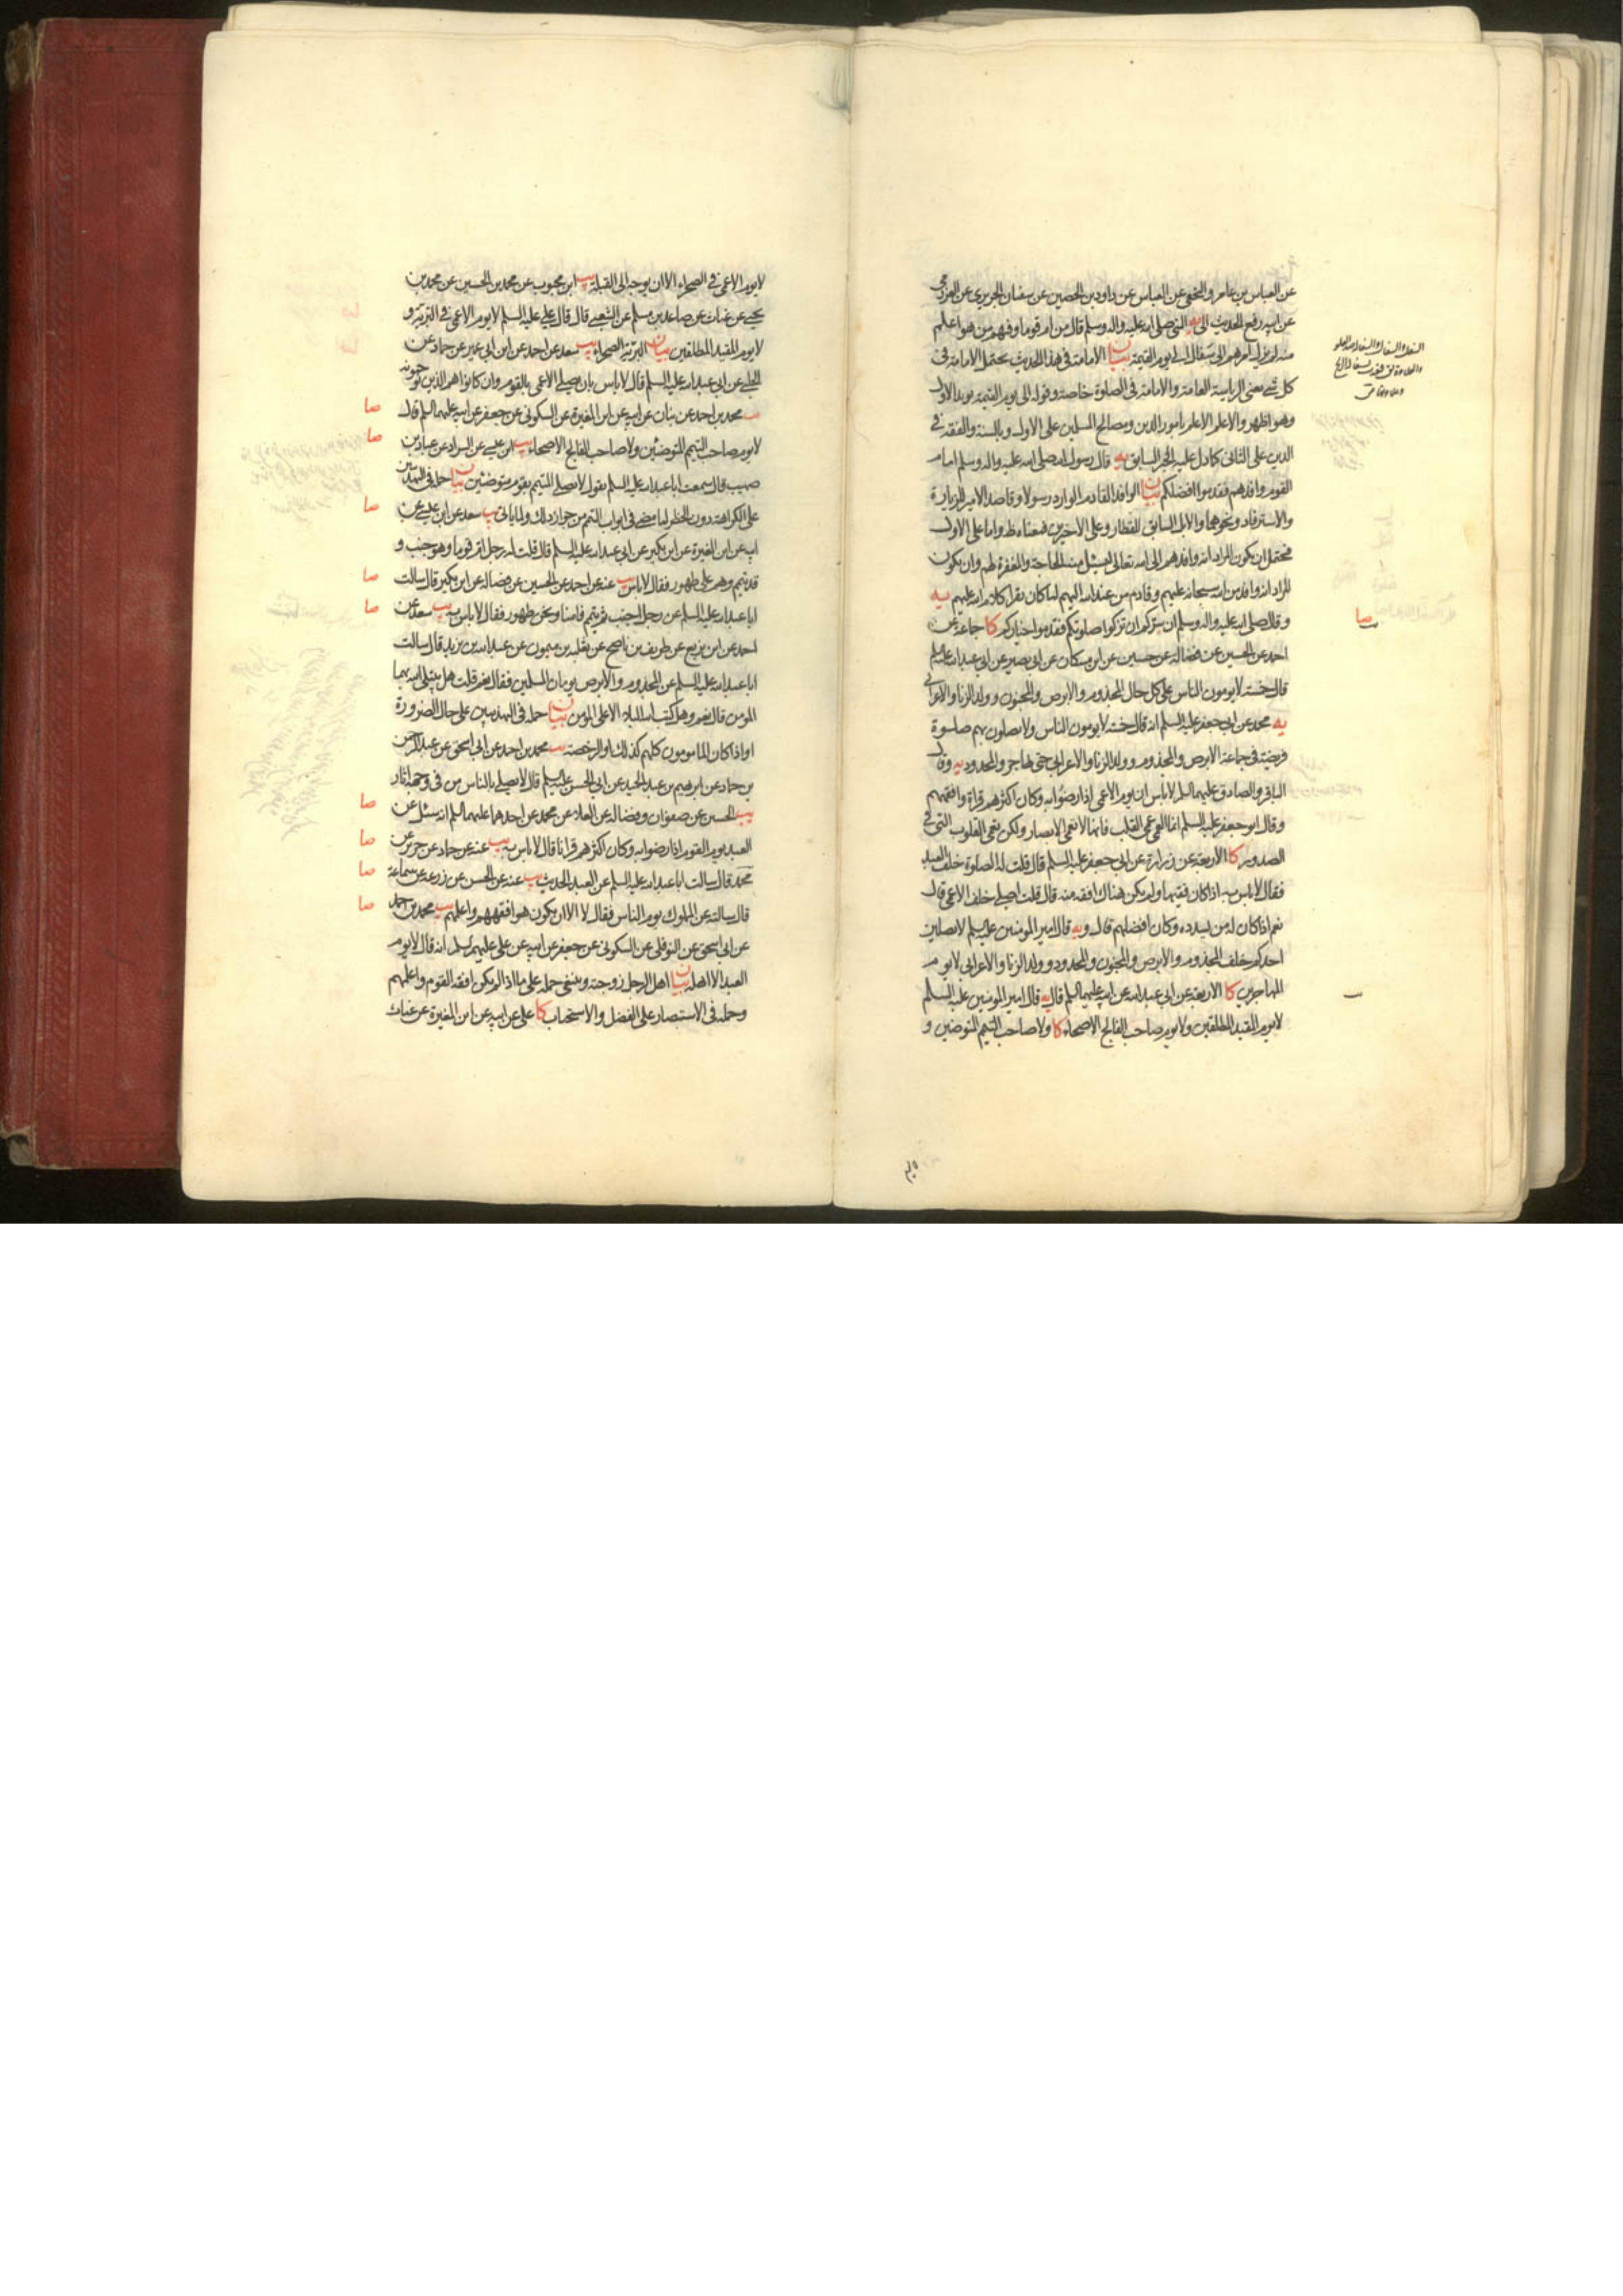 عن العباس بن عامر والنخعي عن العباس عن داود بن الحصين عن سفيان الجريري عن العرزمي
عن ابيه رفع الحديث الى يه النبي صلى الله عليه واله وسلم قال من ام قوما وفيهم من هو اعلم
منه لم يزل امرهم الى سفال الى يوم القيمة بيان الامامة في هذا الحديث يحتمل الامامة في
كل شيء يعني الرياسة العامة والامامة في الصلوة خاصة وقوله الى يوم القيمة يؤيد الاول
وهو اظهر والاعلم الاعلم بامور الدين ومصالح المسلمين على الاول وبالسنة والفقه في
الدين على الثاني كما دل عليه الخبر السابق يه قال رسول الله صلى الله عليه واله وسلم امام
القوم وافدهم فقدموا افضلكم بيان الوافد القادم الوارد رسولا وقاصد الامير للزيارة
والاسترفاد ونحوهما والابل السابق للقطار وعلى الاخيرين فمعناه ظ واما على الاول
فيحتمل ان يكون المراد انه وافدهم الى الله تعالى ليسئل منه الحاجة والمغفرة لهم وان يكون
المراد انه وافد من الله سبحانه عليهم وقادم من عند الله اليهم لما كان يقرا كلام الله عليهم يه
وقال صلى الله عليه واله وسلم ان سركم ان تزكوا صلوتكم فقدموا خياركم كا جماعة عن
احمد عن الحسين عن فضالة عن حسين عن ابن مسكان عن ابي بصير عن ابي عبد الله عليه السلم
قال خمسة لا يؤمون الناس على كل حال المجذوم والابرص والمجنون وولد الزنا والاعرابي
يه محمد عن ابي جعفر عليه السلم انه قال خمسة لا يؤمون الناس ولا يصلون بهم صلوة
فريضة في جماعة الابرص والمجذوم وولد الزنا والاعرابي حتى يهاجر والمحدود يه وقال
الباقر والصادق عليهما السلم لا باس ان يؤم الاعمى اذا رضوا به وكان اكثرهم قراة وافقههم
وقال ابو جعفر عليه السلم انما العمى عمى القلب فانها لا تعمى الابصار ولكن تعمى القلوب التي في
الصدور كا الاربعة عن زرارة عن ابي جعفر عليه السلم قال قلت له الصلوة خلف العبد
فقال لا باس به اذا كان فقيها ولم يكن هناك افقه منه قال قلت اصلي خلف الاعمى قال
نعم اذا كان له من يسدده وكان افضلهم قال ويه قال امير المؤمنين عليه السلم لا يصلين
احدكم خلف المجذوم والابرص والمجنون والمحدود وولد الزنا والاعرابي لا يؤم
المهاجرين كا الاربعة عن ابي عبد الله عن ابيه عليهما السلم قال يه قال امير المؤمنين عليه السلم
لا يؤم المقيد المطلقين ولا يؤم صاحب الفالج الاصحاء كا ولا صاحب التيمم المتوضئين و
صا
لا يؤم الاعمى في الصحراء الا ان يوجه الى القبلة يب ابن محبوب عن محمد بن الحسين عن محمد بن
يحيى عن غياث عن صاعد بن مسلم عن الشعبي قال قال علي عليه السلم لا يؤم الاعمى في البرية و
لا يؤم المقيد المطلقين بيان البرية الصحراء يب سعد عن احمد عن ابن ابي عمير عن حماد عن
الحلبي عن ابي عبد الله عليه السلم قال لا باس بان يصلي الاعمى بالقوم وان كانوا هم الذين يوجهونه
يب محمد بن احمد عن بنان عن ابيه عن ابن المغيرة عن السكوني عن جعفر عن ابيه عليهما السلم قال
صا
لا يؤم صاحب التيمم المتوضئين ولا صاحب الفالج الاصحاء يب ابن عيسى عن السراد عن عباد بن
صا
صهيب قال سمعت ابا عبد الله عليه السلم يقول لا يصلي المتيمم بقوم متوضئين بيان حمله في التهذيبين
على الكراهة دون الحظر لما مضى في ابواب التيمم من جواز ذلك ولما ياتي يب سعد عن ابن عيسى عن
صا
ابيه عن ابن المغيرة عن ابن بكير عن ابي عبد الله عليه السلم قال قلت له رجل ام قوما وهو جنب و
قد تيمم وهم على طهور فقال لا باس يب عنه عن احمد عن الحسين عن فضالة عن ابن بكير قال سالت
صا
ابا عبد الله عليه السلم عن رجل اجنب ثم تيمم فامنا ونحن طهور فقال لا باس به يب سعد عن
صا
احمد عن ابن بزيع عن ظريف بن ناصح عن ثعلبة بن ميمون عن عبد الله بن يزيد قال سالت
ابا عبد الله عليه السلم عن المجذوم والابرص يؤمان المسلمين فقال نعم قلت هل يبتلي الله بهما
المؤمن قال نعم وهل كتب الله البلاء الا على المؤمن بيان حمله في التهذيبين على حال الضرورة
او اذا كان المامومون كلهم كذلك او الرخصة يب محمد بن احمد عن ابي اسحق عن عبد الرحمن
بن حماد عن ابرهيم بن عبد الحميد عن ابي الحسن عليه السلم قال لا يصلي بالناس من في وجهه اثار
يب الحسين عن صفوان وفضالة عن العلاء عن محمد عن احدهما عليهما السلم انه سئل عن
صا
العبد يؤم القوم اذا رضوا به وكان اكثرهم قرانا قال لا باس به يب عنه عن حماد عن حريز عن
صا
محمد قال سالت ابا عبد الله عليه السلم عن العبد الحديث يب عنه عن الحسن عن زرعة عن سماعة
صا
قال سالته عن المملوك يؤم الناس فقال لا الا ان يكون هو افقههم واعلمهم يب محمد بن احمد
صا
عن ابي اسحق عن النوفلي عن السكوني عن جعفر عن ابيه عن علي عليهم السلم انه قال لا يؤم
العبد الا اهله بيان اهل الرجل زوجته وينبغي حمله على ما اذا لم يكن افقه القوم واعلمهم
وحمله في الاستبصار على الفضل والاستحباب كا علي عن ابيه عن ابن المغيرة عن غياث